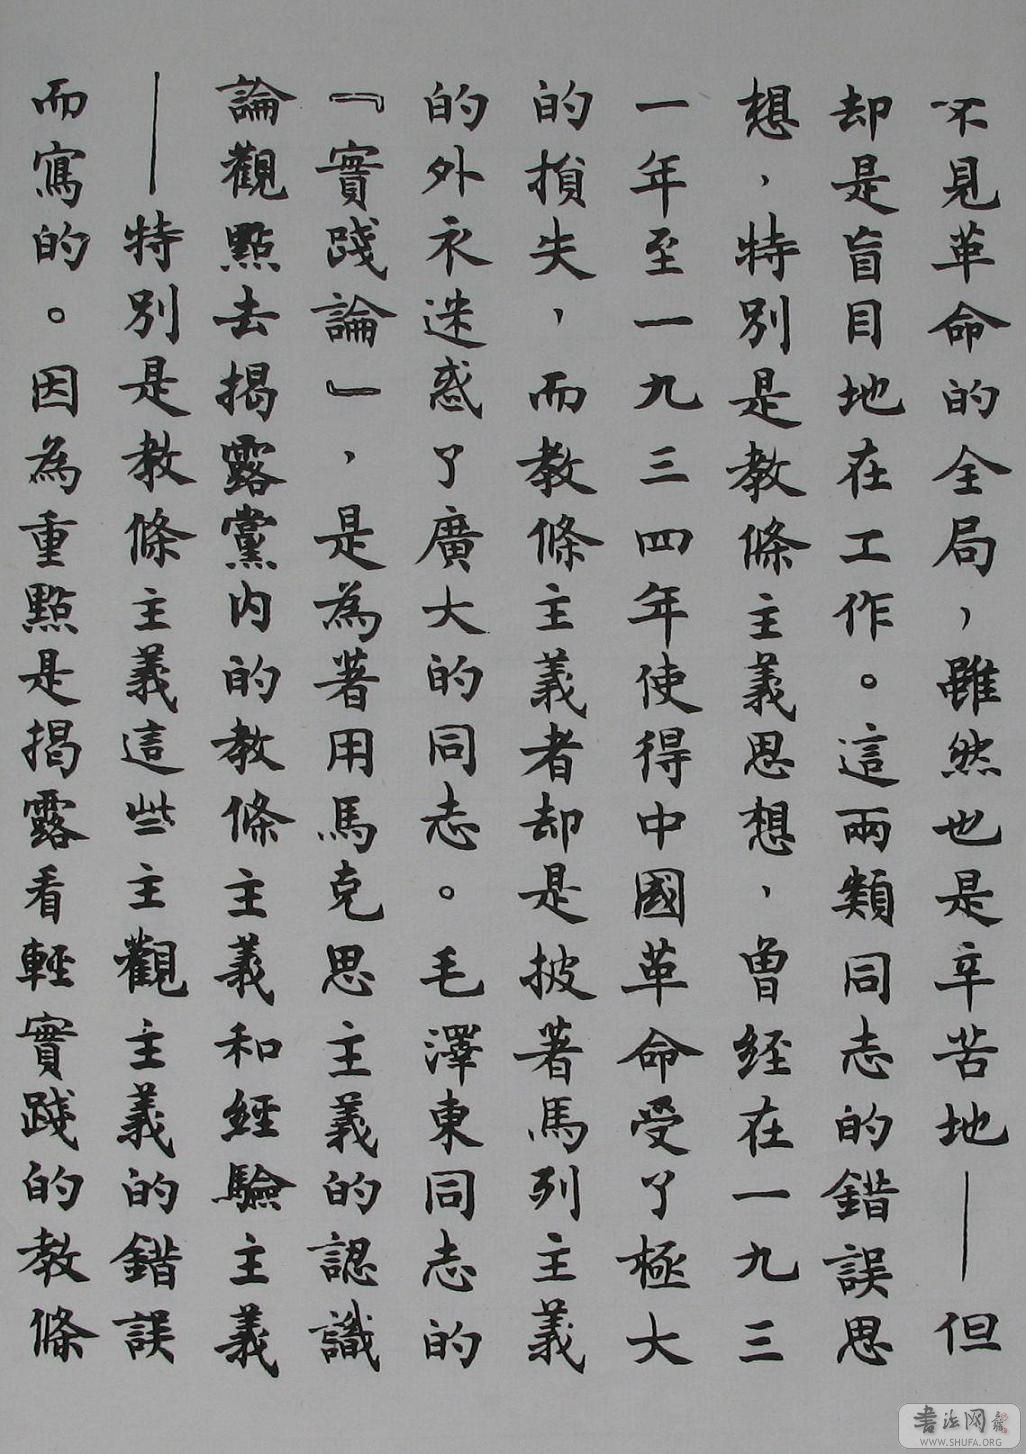 不見革命的全局，雖然也是辛苦地——但
却是盲目地在工作。這兩類同志的錯誤思
想，特別是教條主義思想，曾経在一九三
一年至一九三四年使得中國革命受了極大
的損失，而教條主義者却是披著馬列主義
的外衣迷惑了廣大的同志。毛澤東同志的
『實踐論』，是為著用馬克思主義的認識
論觀點去揭露黨內的教條主義和經驗主義
——特別是教條主義這些主觀主義的錯誤
而寫的。因為重點是揭露看輕實踐的教條
書法网
WWW.SHUFA.ORG